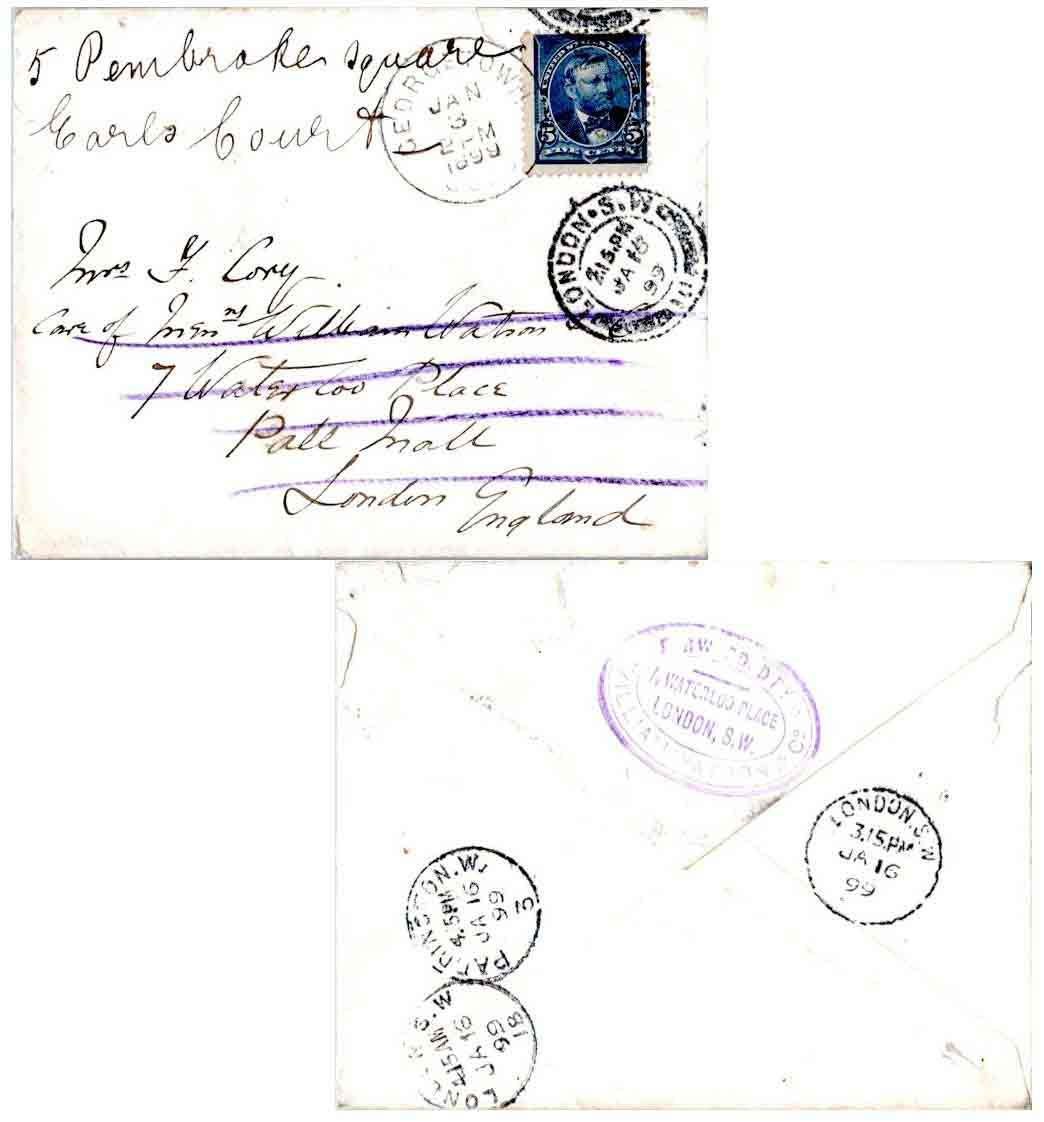 5 Pembroke square
Earls Court
GEORGETOWN
JAN
3
2 PM
1899
UNITED STATES POSTAGE
5 5
LONDON. S.W
2.15.PM
JA 15
99
Mrs F. Cory
Care of Messrs William Watson
7 Waterloo Place
Pall Mall
London England
7, WATERLOO PLACE
LONDON, S.W.
WILLIAM WATSON & CO
LONDON. S.W
3.15.PM
JA 16
99
4.5PM
JA 16
99
3
LONDON S.W
JA 16
99
18